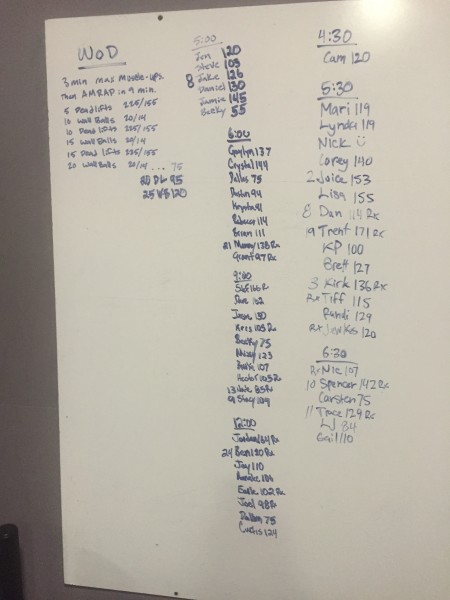 WOD
3 min max muscle-ups.
then AMRAP in 9 min.
5 Deadlifts 225/155
10 Wall Balls 20/14
10 Dead lifts 225/155
15 Wall Balls 20/14
15 Dead lifts 225/155
20 Wall Balls 20/14 ... 75
20 DL 95
25 WB 120
5:00
Jon 120
Steve 103
8 Jake 126
Daniel 130
Jamie 145
Becky 55
6:00
137
Crystal 144
Dallas 75
Dustin 94
Krysta 91
Rebecca 114
Brian 111
21 Manny 138 Rx
Grant 97 Rx
9:00
Dave 102
Jason 130
Kris 105 Rx
Becky 75
Missy 123
107
Hector 105 Rx
13 Nate 85 Rx
9 Stacy 109
12:00
84 Rx
24 Bean 120 Rx
Jay 110
106
102 Rx
Joel 98 Rx
75
Curtis 124
4:30
Cam 120
5:30
Mari 119
Lynda 119
Nick ☺
Corey 140
2 Joice 153
Lisa 155
8 Dan 144 Rx
19 Trent 171 Rx
KP 100
Brett 127
3 Kirk 136 Rx
Rx Tiff 115
Randi 129
Rx 120
6:30
Rx Nic 107
10 Spencer 142 Rx
Carsten 75
11 Trace 129 Rx
LJ 84
Gail 110